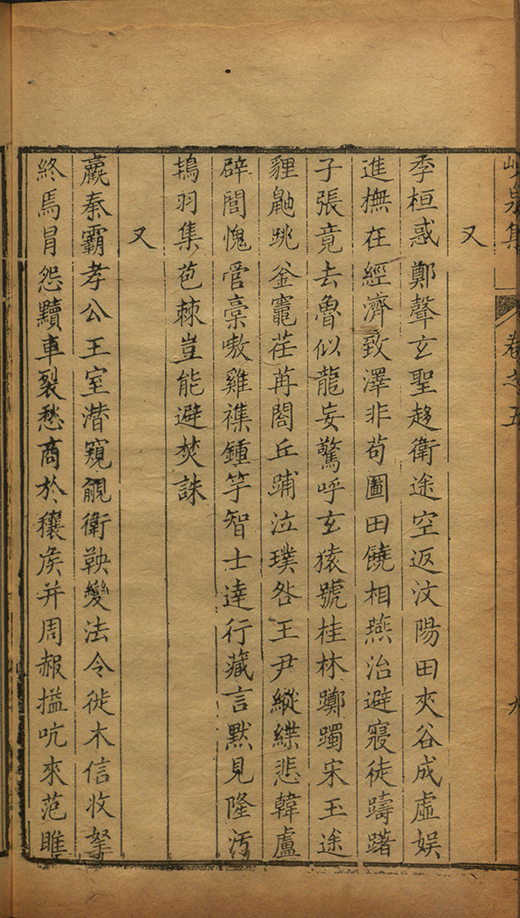 峴泉集 卷之五 九
又
季桓惑鄭聲玄聖趍衛途空返汶陽田夾谷成虛娱
進撫在經濟致澤非苟圖田饒相燕治避寢徒躊躇
子張竟去魯似龍妄驚呼玄猿號桂林躑躅宋玉途
貍鼬跳釜竈荏苒閤丘踊泣璞咎王尹縱緤悲韓盧
辟閭愧菅槀嗷雞襍鍾竽智士達行藏言黙見隆汚
鴇羽集苞棘豈能避焚誅
又
嬴秦霸孝公王室潜窺覦衛鞅變法令徙木信收孥
終焉冒怨黷車裂愁商於穰侯并周赧搤吭來范睢